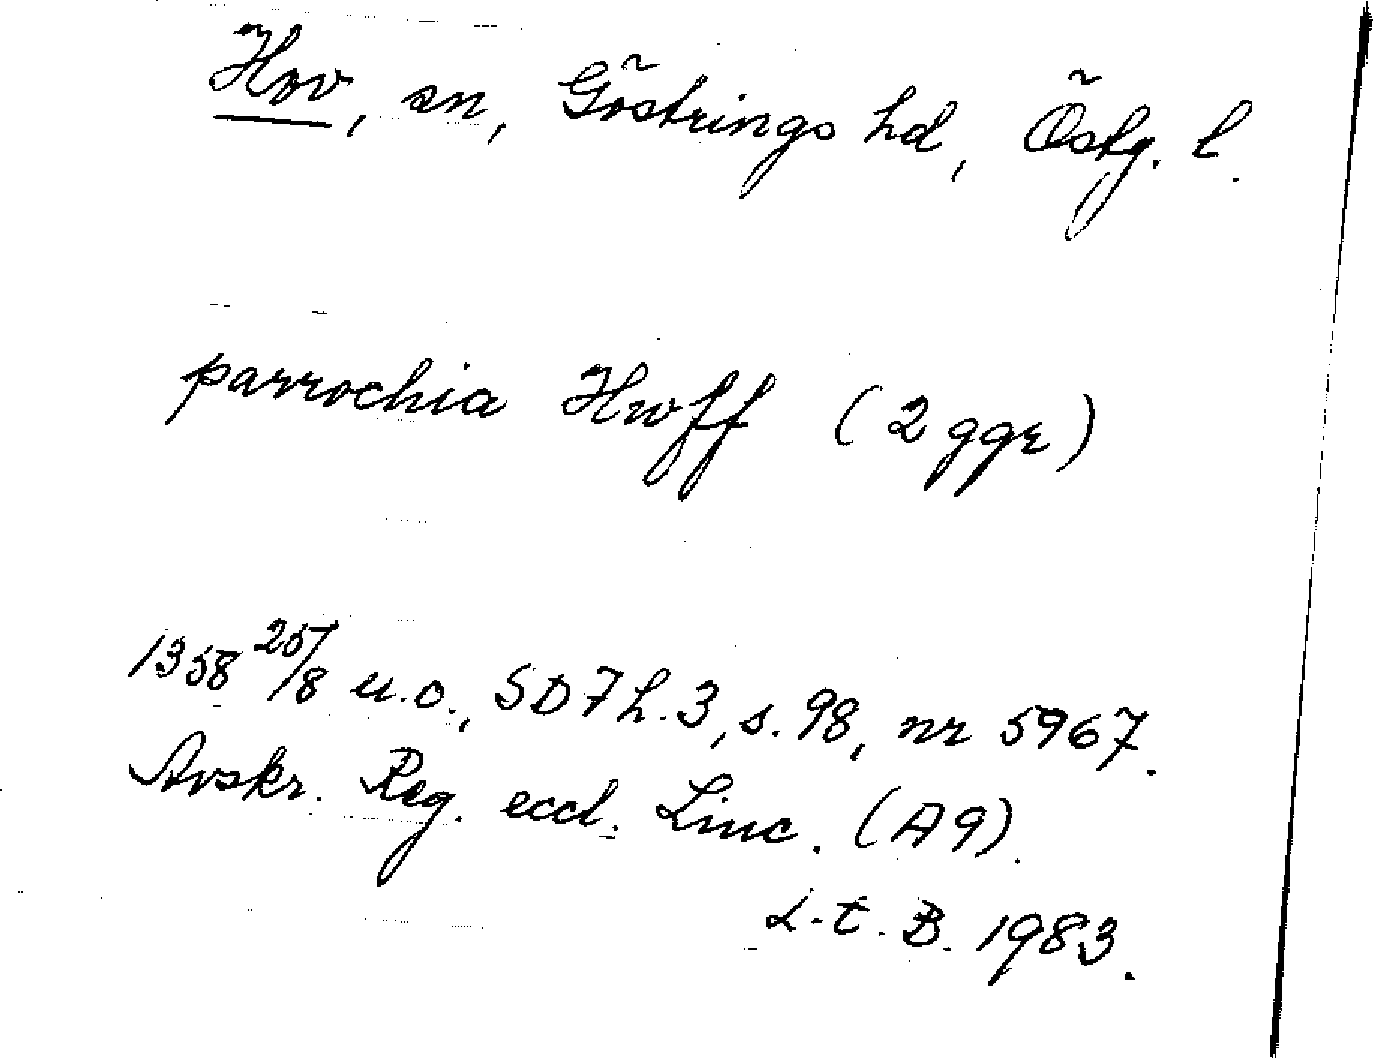 Hov, sn, Göstrings hd, Östg. l.
parrochia Hwff (2 ggr)
1358 25/8 u.o., SD 7 h. 3, s. 98, nr 5967.
Avskr. Reg. eccl. Linc. (A9).
L.t.B. 1983.